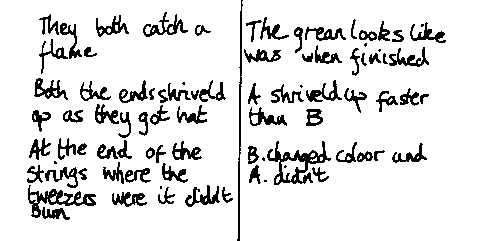 They both catch a
flame
Both the ends shriveld
up as they got hat
At the end of the
strings where the
tweezers were it didn't
Burn
The grean looks like
was when finished
A shriveld up faster
than B
B. changed coloor and
A. didn't